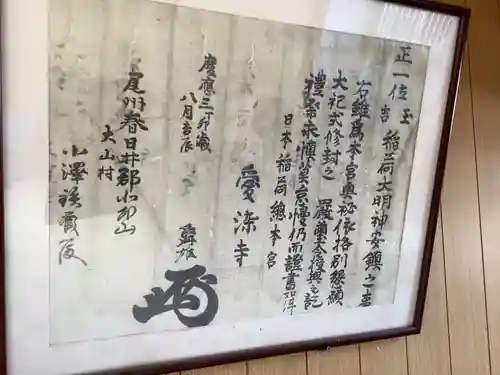 正一位 玉吉 稲荷大明神安鎮之事
右雖為本宮奥秘依格別懇願
大祀式修封之 厳璽後与之訖
礼祭永慎莫怠慢仍而證書如件
日本稲荷總本宮
愛染寺
慶應三丁卯歳
八月吉辰
尾州春日井郡小牧山
大山村
小澤
殿